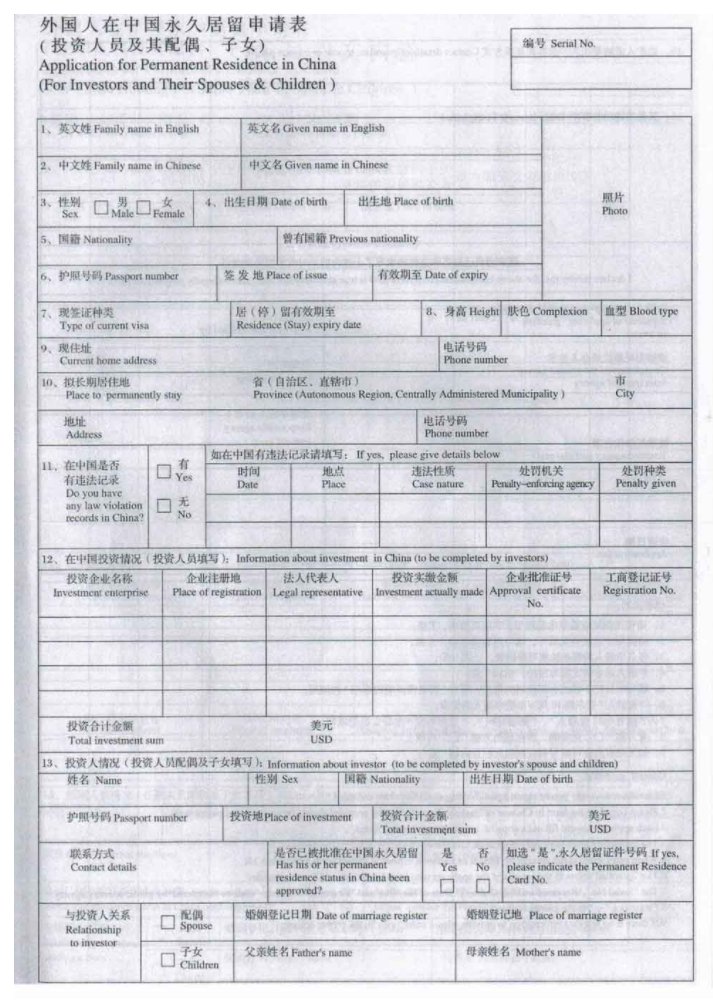 外国人在中国永久居留申请表
(投资人员及其配偶、子女)
Application for Permanent Residence in China
(For Investors and Their Spouses & Children )
编号 Serial No.
1、英文姓 Family name in English
英文名 Given name in English
2、中文姓 Family name in Chinese
中文名 Given name in Chinese
照片
Photo
3、性别 男 女
Sex Male Female
4、出生日期 Date of birth
出生地 Place of birth
5、国籍 Nationality
曾有国籍 Previous nationality
6、护照号码 Passport number
签 发 地 Place of issue
有效期至 Date of expiry
7、现签证种类
Type of current visa
居(停)留有效期至
Residence (Stay) expiry date
8、身高 Height
肤色 Complexion
血型 Blood type
9、现住址
Current home address
电话号码
Phone number
10、拟长期居住地
Place to permanently stay
省(自治区、直辖市)
Province (Autonomous Region, Centrally Administered Municipality )
市
City
地址
Address
电话号码
Phone number
11、在中国是否
有违法记录
Do you have
any law violation
records in China?
有
Yes
无
No
如在中国有违法记录请填写: If yes, please give details below
时间
Date
地点
Place
违法性质
Case nature
处罚机关
Penalty-enforcing agency
处罚种类
Penalty given
12、在中国投资情况(投资人员填写): Information about investment in China (to be completed by investors)
投资企业名称
Investment enterprise
企业注册地
Place of registration
法人代表人
Legal representative
投资实缴金额
Investment actually made
企业批准证号
Approval certificate
No.
工商登记证号
Registration No.
投资合计金额
Total investment sum
美元
USD
13、投资人情况(投资人员配偶及子女填写): Information about investor (to be completed by investor's spouse and children)
姓名 Name
性别 Sex
国籍 Nationality
出生日期 Date of birth
护照号码 Passport number
投资地Place of investment
投资合计金额
Total investment sum
美元
USD
联系方式
Contact details
是否已被批准在中国永久居留
Has his or her permanent
residence status in China been
approved?
是 否
Yes No
如选"是",永久居留证件号码 If yes,
please indicate the Permanent Residence
Card No.
与投资人关系
Relationship
to investor
配偶
Spouse
婚姻登记日期 Date of marriage register
婚姻登记地 Place of marriage register
子女
Children
父亲姓名 Father's name
母亲姓名 Mother's name